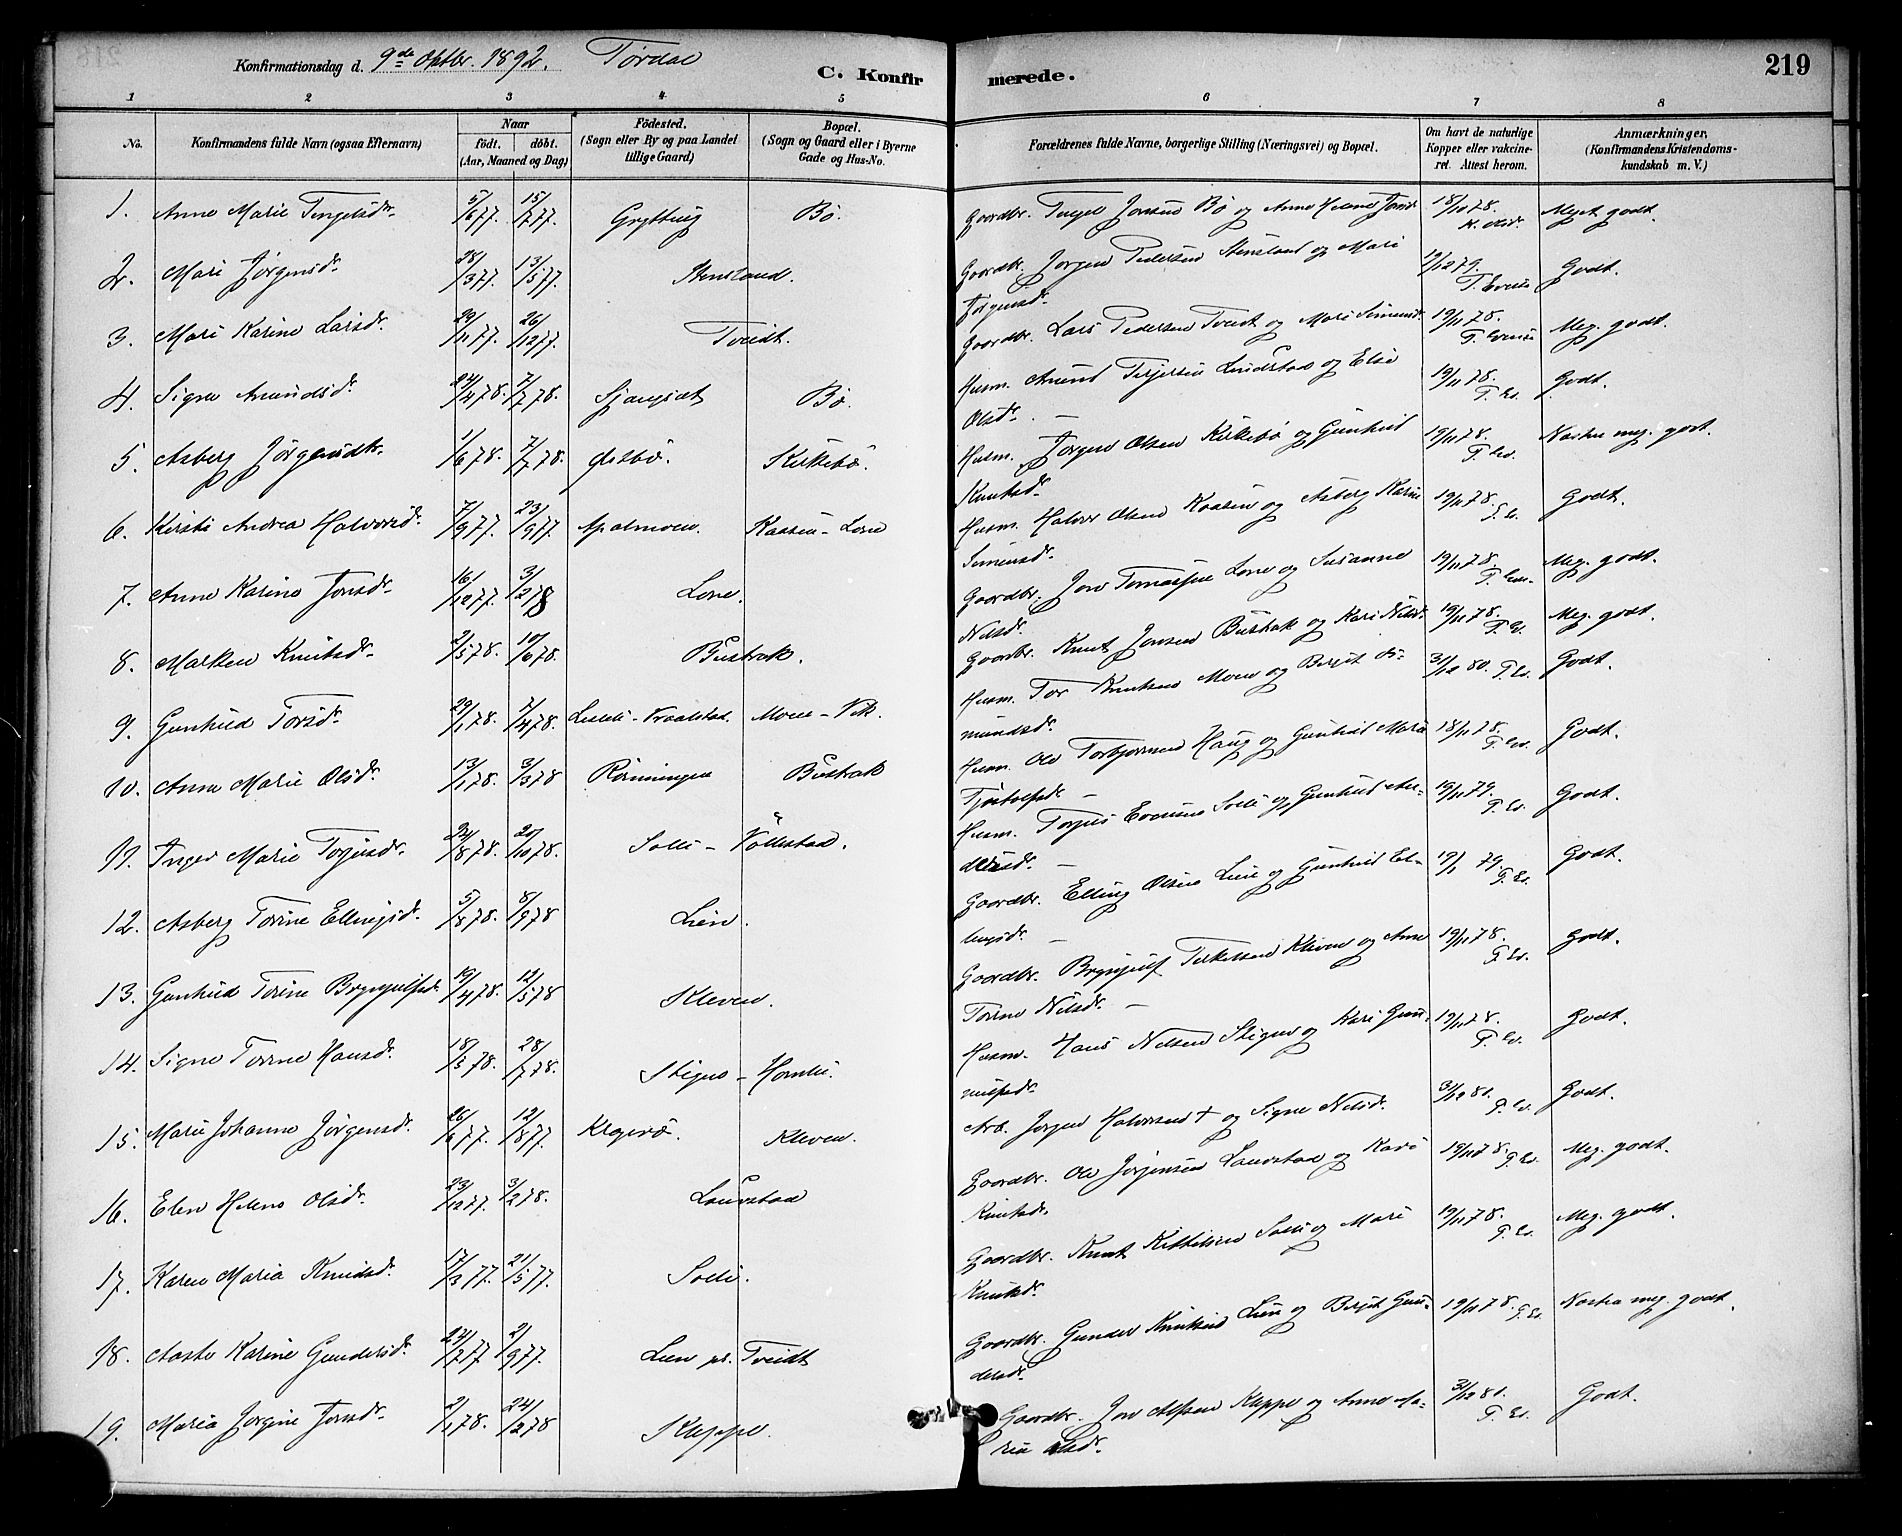 Konfirmationsdag d. 9de Oktbr. 1892. Tørdal
C. Konfirmerede.
219
1 2 3 4 5 6 7 8
No. Konfirmandens fulde Navn (ogsaa Efternavn) Naar födt. döbt. (Aar, Maaned og Dag) Födested. (Sogn eller By og paa Landet tillige Gaard) Bopæl. (Sogn og Gaard eller i Byerne Gade og Hus-No. Forældrenes fulde Navne, borgerlige Stilling (Næringsvei) og Bopæl. Om havt de naturlige Kopper eller vakcineret. Attest herom. Anmærkninger. (Konfirmandens Kristendomskundskab m. V.)
1. Anne Marie Tengelsdr. 5/6 77. 15/7 77. Grytting Bø. Gaardbr. Tengel Jonsen Bø og Anne Helene Jonsd 18/10 78. Meget godt.
2. Mari Jørgensdr. 28/3 77. 13/5 77. Stensland. Gaardbr. Jørgen Pedersen Stensland og Mari Jørgensdr. 19/12 79. Godt.
3. Mari Karine Larsdr. 29/11 77. 26/12 77. Tveidt. Gaardbr. Lars Pedersen Tveidt og Mari Simensdr. 19/11 78. Meg. godt.
4. Signe Amundsdr. 24/4 78. 7/7 78. Bø. Husm. Amund Terjesen Lundstad og Else Olsdr. 19/11 78. Godt.
5. Asberg Jørgensdtr. 1/6 78. 7/7 78. Kirkebø. Husm. Jørgen Olsen Kirkebø og Gunhild Knutsdr. 19/11 78. Næsten meg. godt.
6. Kirsti Andrea Halvorsdr. 7/9 77. 23/9 77. Apalmoen. Kaasen - Lone Husm. Halvor Olsen Kaasen og Asberg Karine Simensdr. 19/11 78. Godt.
7. Anne Karine Jonsdr. 16/12 77. 3/2 78 Lone. Gaardbr. Jon Tomassen Lone og Susanne Nilsdr. 19/11 78. Meg. godt.
8. Marken Knutsdr. 2/5 78. 10/6 78. Bustrak. Gaardbr. Knut Jonsen Bustrak og Kari Nilsdr. 19/11 78. Meg. godt.
9. Gunhild Torsdr. 29/1 78. 7/4 78. Lisleli - Vraalstad. Moen - Vik. Husm. Tor Knutsen Moen og Bergit Osmundsdr. 31/12 80. Godt.
10. Anne Marie Olsdr. 13/1 78. 3/3 78 Rønningen Bustrak Husm. Ole Torbjørnsen Haug og Gunhild Marie Tjøstolfsdr. 18/11 78. Godt.
11. Inger Marie Torjusdr. 24/8 78. 20/10 78. Solli - Vøllestad. Husm. Torjus Evensen Solli og Gunhild Andersdr. 19/11 79. Godt.
12. Asberg Torine Ellingsdr. 5/8 78. 8/9 78 Lien. Gaardbr. Elling Olsen Lien og Gunhild Ellingsdr. 19/1 79. Godt.
13. Gunhild Torine Brynjulfsdr. 19/4 78. 12/5 78 Kleven. Gaardbr. Brynjulf Terkelsen Kleven og Anne Torine Nilsdr. 19/11 78. Godt.
14. Signe Torine Hansdr. 18/5 78. 28/7 78. Stigen - Homlei. Husm. Hans Nilsen Stigen og Kari Gunnulfsdr. 19/11 78. Godt.
15. Marie Johanne Jørgensdr. 26/6 77. 12/8 77. Kragerø. Kleven. Arb. Jørgen Halvorsen † og Signe Nilsdr. 31/12 80. Godt.
16. Elen Helene Olsdr. 23/12 77. 3/2 78. Laurstad Gaardbr. Ole Jørgensen Laurstad og Kari Knutsdr. 19/11 78. Meg. godt.
17. Karen Maria Knudsdr. 17/3 77. 21/5 77. Solli. Gaardbr. Knut Kittilsen Solli og Mari Knutsdr. 19/11 78. Meg. godt.
18. Aaste Karine Gundersdr. 24/7 77 2/9 77. Lien pr. Tveidt Gaardbr. Gunder Knutsen Lien og Bergit Gundersdr. 19/11 78. Næsten meg. godt.
19. Maria Jørgine Jonsdr. 2/1 78. 24/2 78 Kleppe. Gaardbr. Jon Kleppe og Anne Maria Olsdr. 31/12 80. Godt.